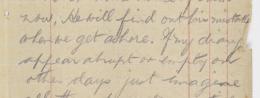 now, He will find out his mistake
when we get ashore. If my diary
appear abrupt or empty on
other days just imagine